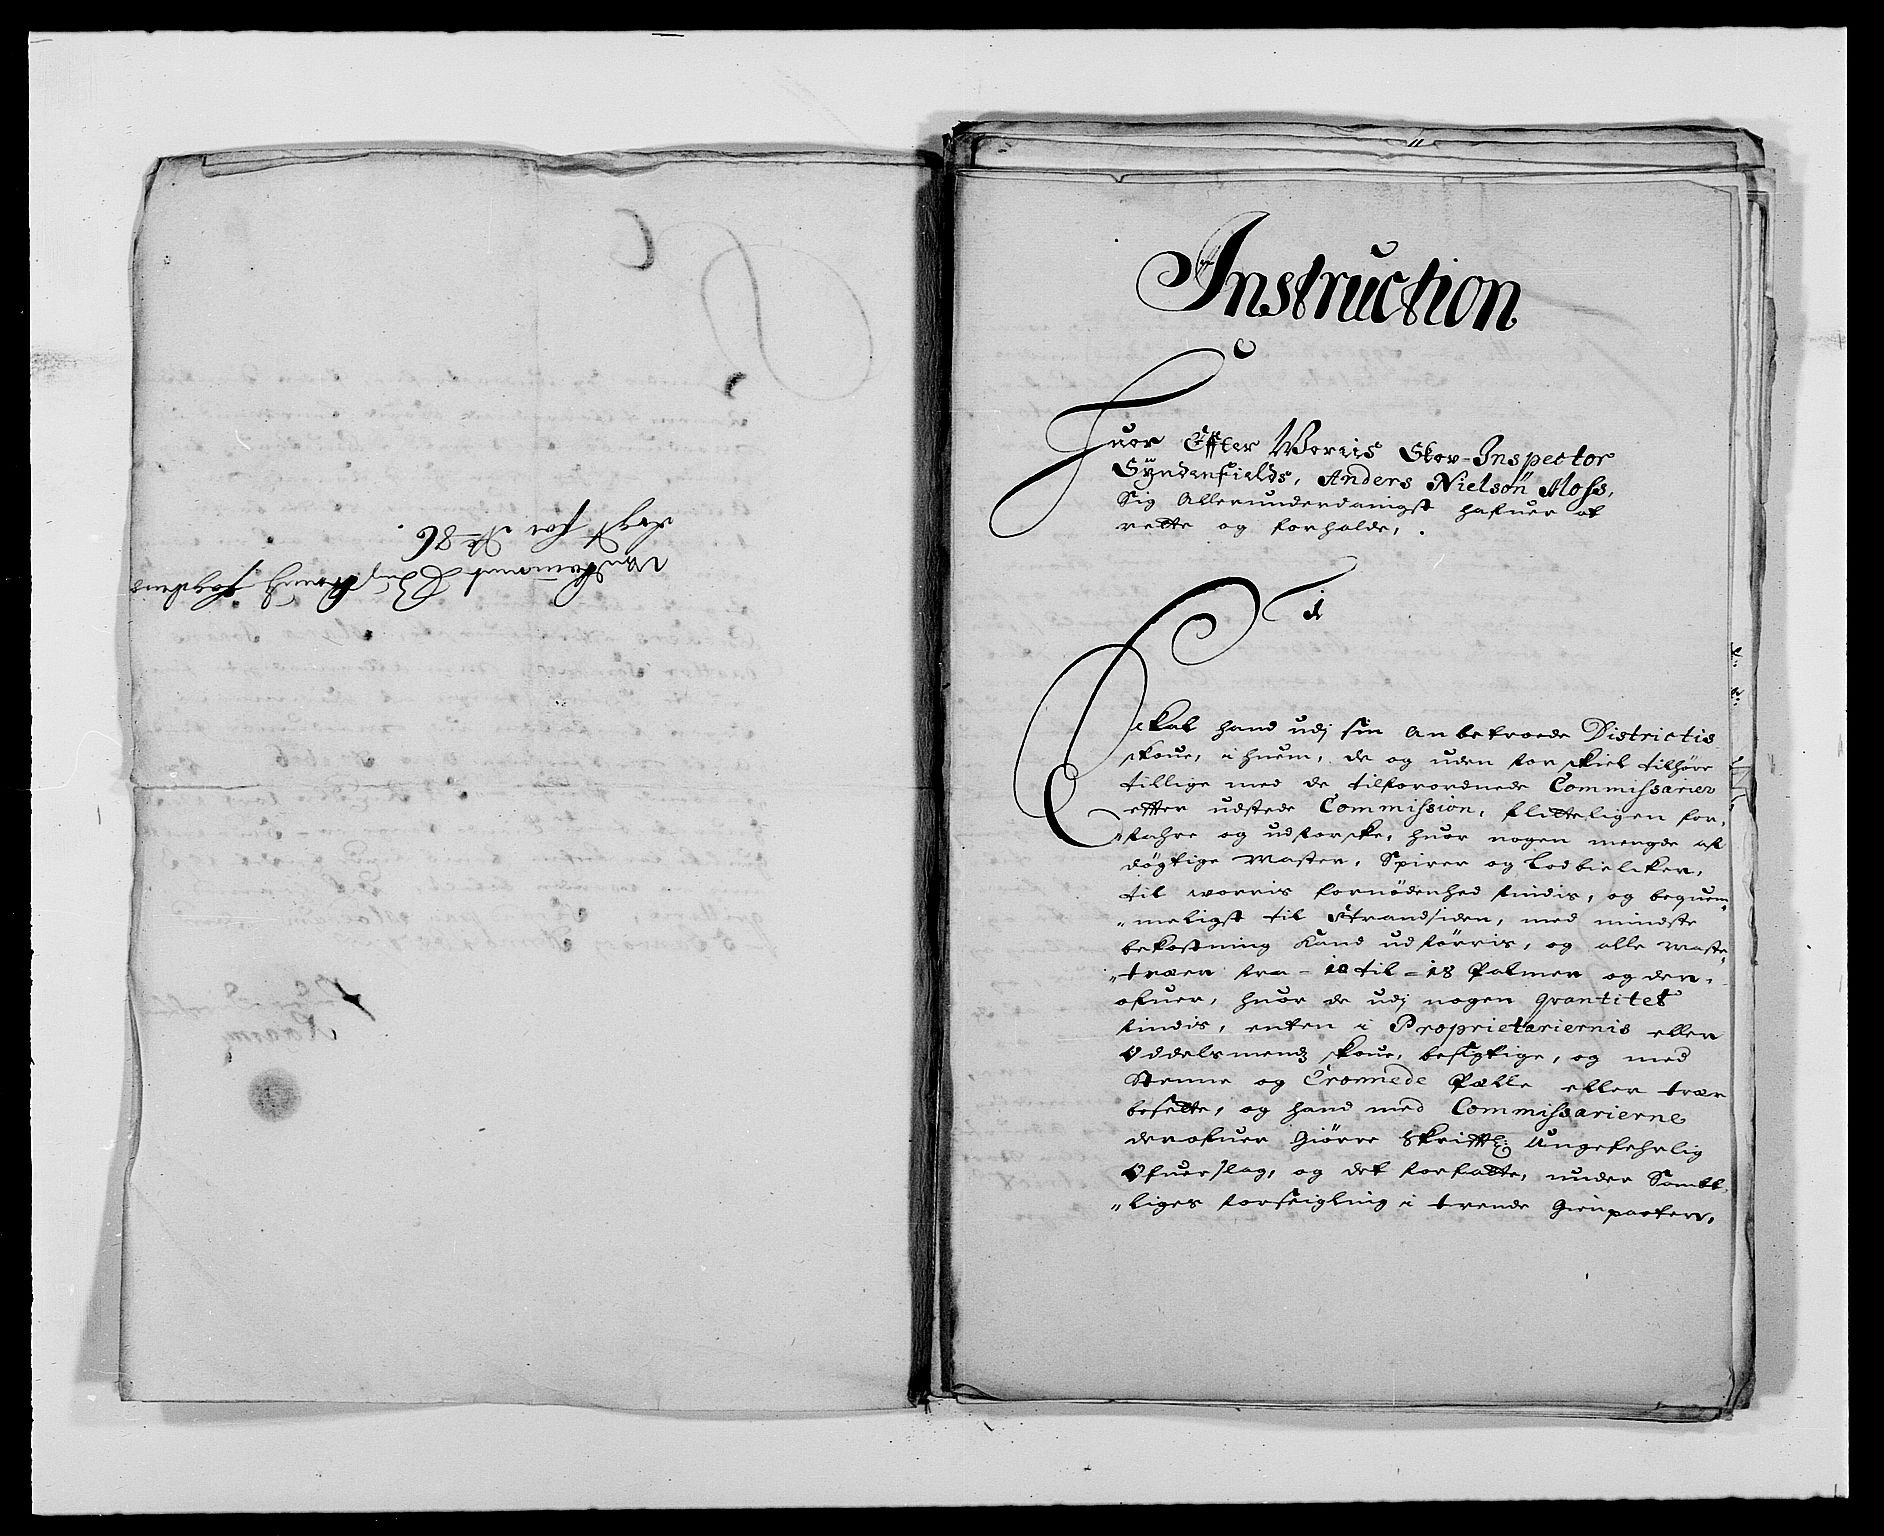 Instruction
Huor Effter Woriis Skov-Inspector
Syndenfields, Anders Nielsøn Moss,
Sig Allerunderdanigst hafuer at
rette og forholde,
1
Skal hand udj sin anbetroede Districtis
skoue, i huem, de og uden forskiel tilhøre
tillige med de tilforordnede Commissarier
effter udstede Commission, flitteligen for,
"fahre og udforske, huor nogen mengde af
døgtige Master, Spirer og Lodbielcker,
til worris fornødenhed findis, og bequem,,
"meligst til Strandsiden, med mindste
bekostning Kand udførris, og alle Maste,,
"træer fra - 10 til - 18 Palmer og der,
ofuer, huor de udj nogen qvantitet
findis, enten i Proprietariernis eller
Oddelsmends skoue, besigtige, og med
Stenne og Cronnede Pælle eller træer
besette, og hand med Commissarierne
derofuer Giørre Skrifftl: Ungefehrlig
Ofuerslag, og det forfatte, under Samtl,
"liges forseigling i trende Gienparter,